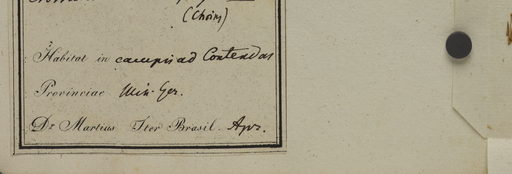 (Choisy)
Habitat in campis ad Contendas
Provinciae Min. Ger.
Dr. Martius Iter Brasil. Apr.